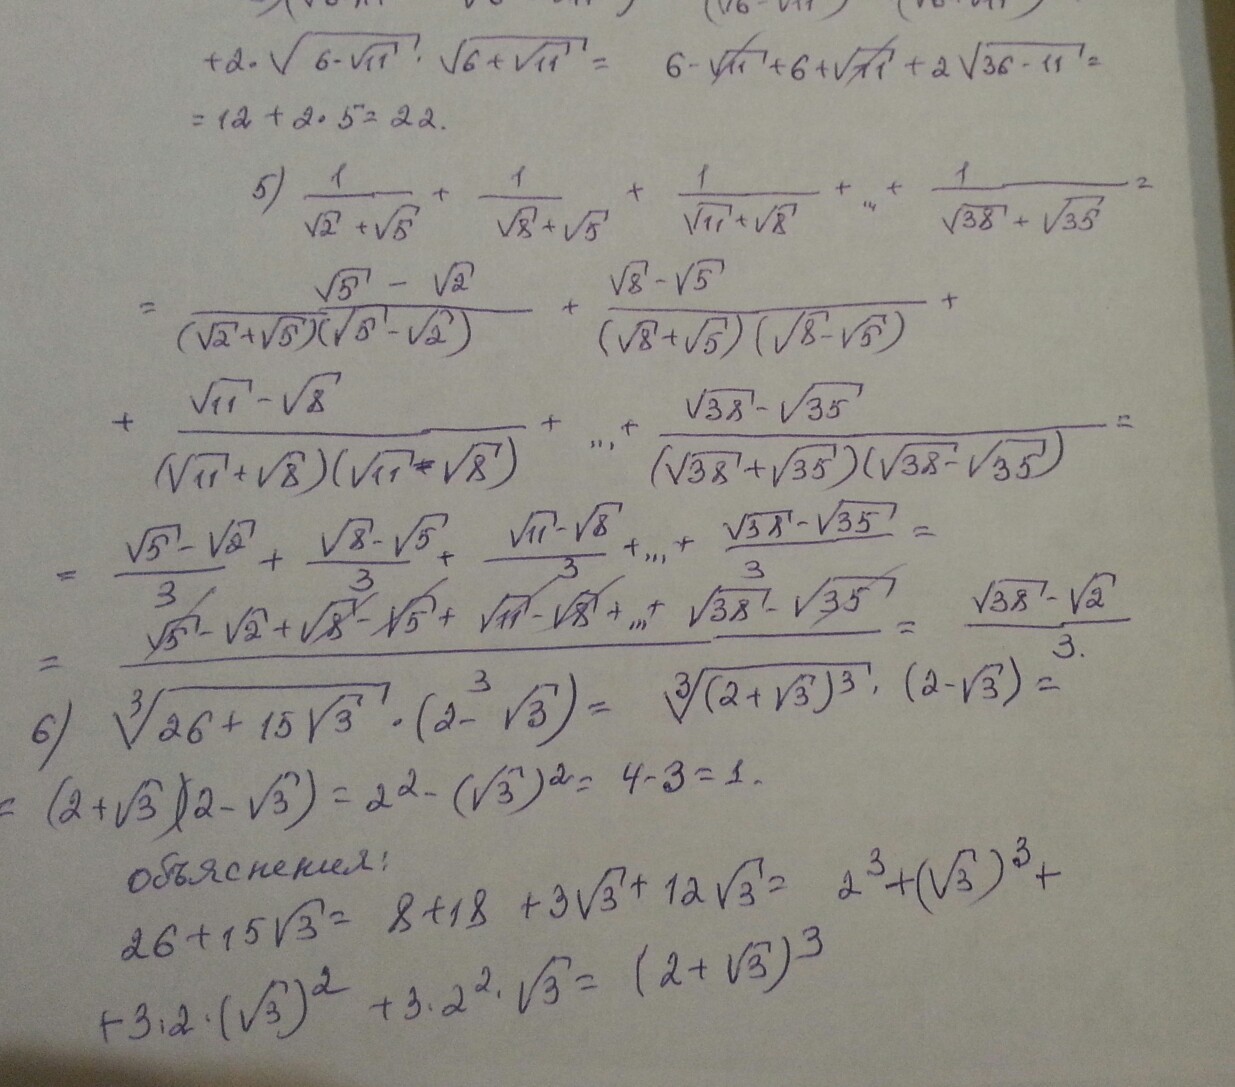 +2·√(6-√11) · √(6+√11) = 6-√11+6+√11+2√(36-11) =
= 12 + 2·5 = 22.
5) 1/(√2+√5) + 1/(√8+√5) + 1/(√11+√8) + ... + 1/(√38+√35) =
= (√5-√2)/((√2+√5)(√5-√2)) + (√8-√5)/((√8+√5)(√8-√5)) +
+ (√11-√8)/((√11+√8)(√11-√8)) + ... + (√38-√35)/((√38+√35)(√38-√35)) =
= (√5-√2)/3 + (√8-√5)/3 + (√11-√8)/3 + ... + (√38-√35)/3 =
= (√5-√2+√8-√5+√11-√8+...+√38-√35)/3 = (√38-√2)/3.
6) ∛(26+15√3) · (2-√3) = ∛((2+√3)³) · (2-√3) =
= (2+√3)(2-√3) = 2² - (√3)² = 4-3 = 1.
объяснения:
26+15√3 = 8+18+3√3+12√3 = 2³+(√3)³+
+3·2·(√3)² + 3·2²·√3 = (2+√3)³